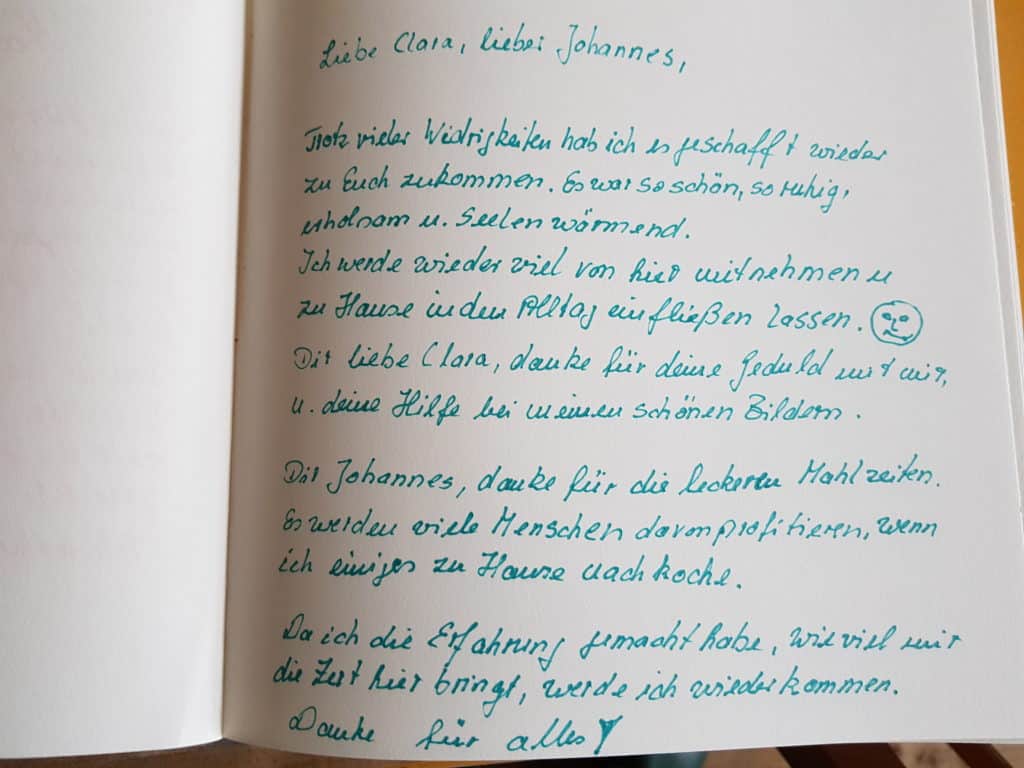 Liebe Clara, lieber Johannes,
Trotz vieler Widrigkeiten hab ich es geschafft wieder
zu Euch zukommen. Es war so schön, so ruhig,
erholsam u. Seelen wärmend.
Ich werde wieder viel von hier mitnehmen u
zu Hause in den Alltag einfließen lassen.
Dir liebe Clara, danke für deine Geduld mit mir,
u. deine Hilfe bei meinen schönen Bildern.
Dir Johannes, danke für die leckeren Mahlzeiten.
Es werden viele Menschen davon profitieren, wenn
ich einiges zu Hause nachkoche.
Da ich die Erfahrung gemacht habe, wie viel mir
die Zeit hier bringt, werde ich wiederkommen.
Danke für alles!